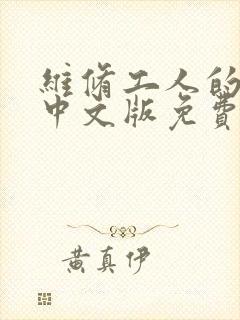 維脩工人的
中文版免費
黃真伊